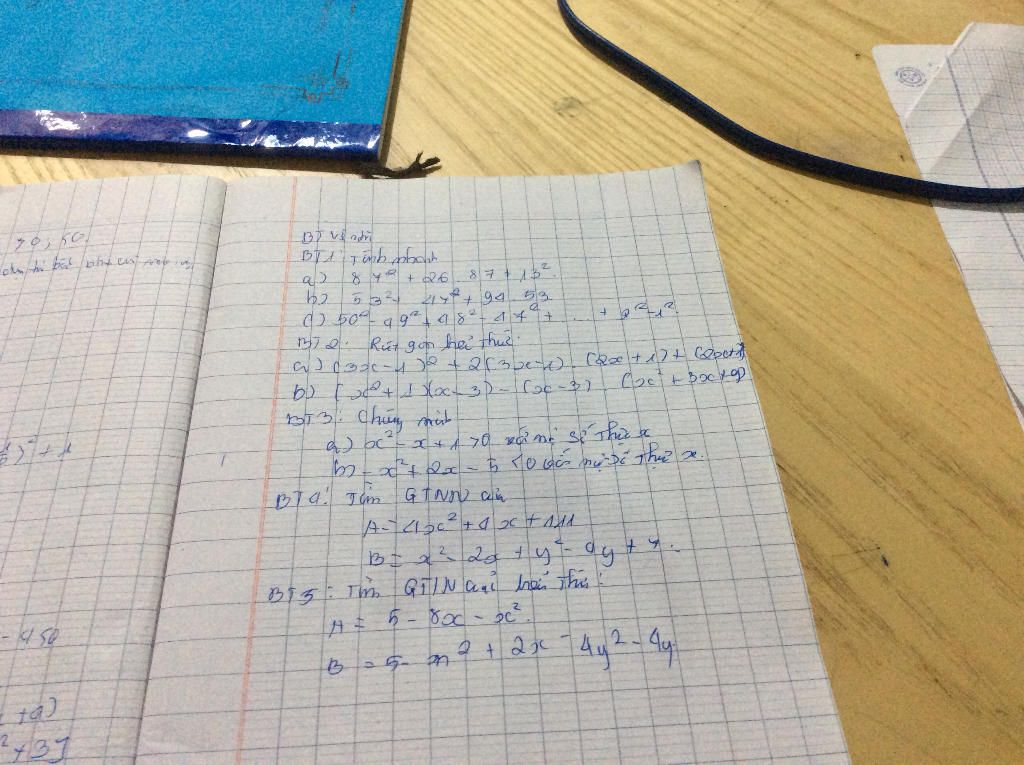 70, 50
)² + 1
- 450
+a)
² + 3]
BT Về nhà
BT1: Tính nhanh
a) 87² + 26.87 + 13²
b) 53² + 47² + 94.53
c) 50² - 49² + 48² - 47² + ... + 2² - 1²
BT2: Rút gọn biểu thức:
a) (3x - 1)² + 2(3x - 1).(2x + 1) + (2x+1)²
b) (x² + 1)(x - 3) - (x - 3) (x² + 3x + 9)
BT3: Chứng minh
a) x² - x + 1 > 0 với mọi số thực x
b) - x² + 2x - 5 < 0 với mọi số thực x.
BT4: Tìm GTNN của
A = 4x² + 4x + 11
B = x² - 2x + y² - 4y + 7.
BT5: Tìm GTLN của biểu thức:
A = 5 - 8x - x².
B = 5 - x² + 2x - 4y² - 4y.